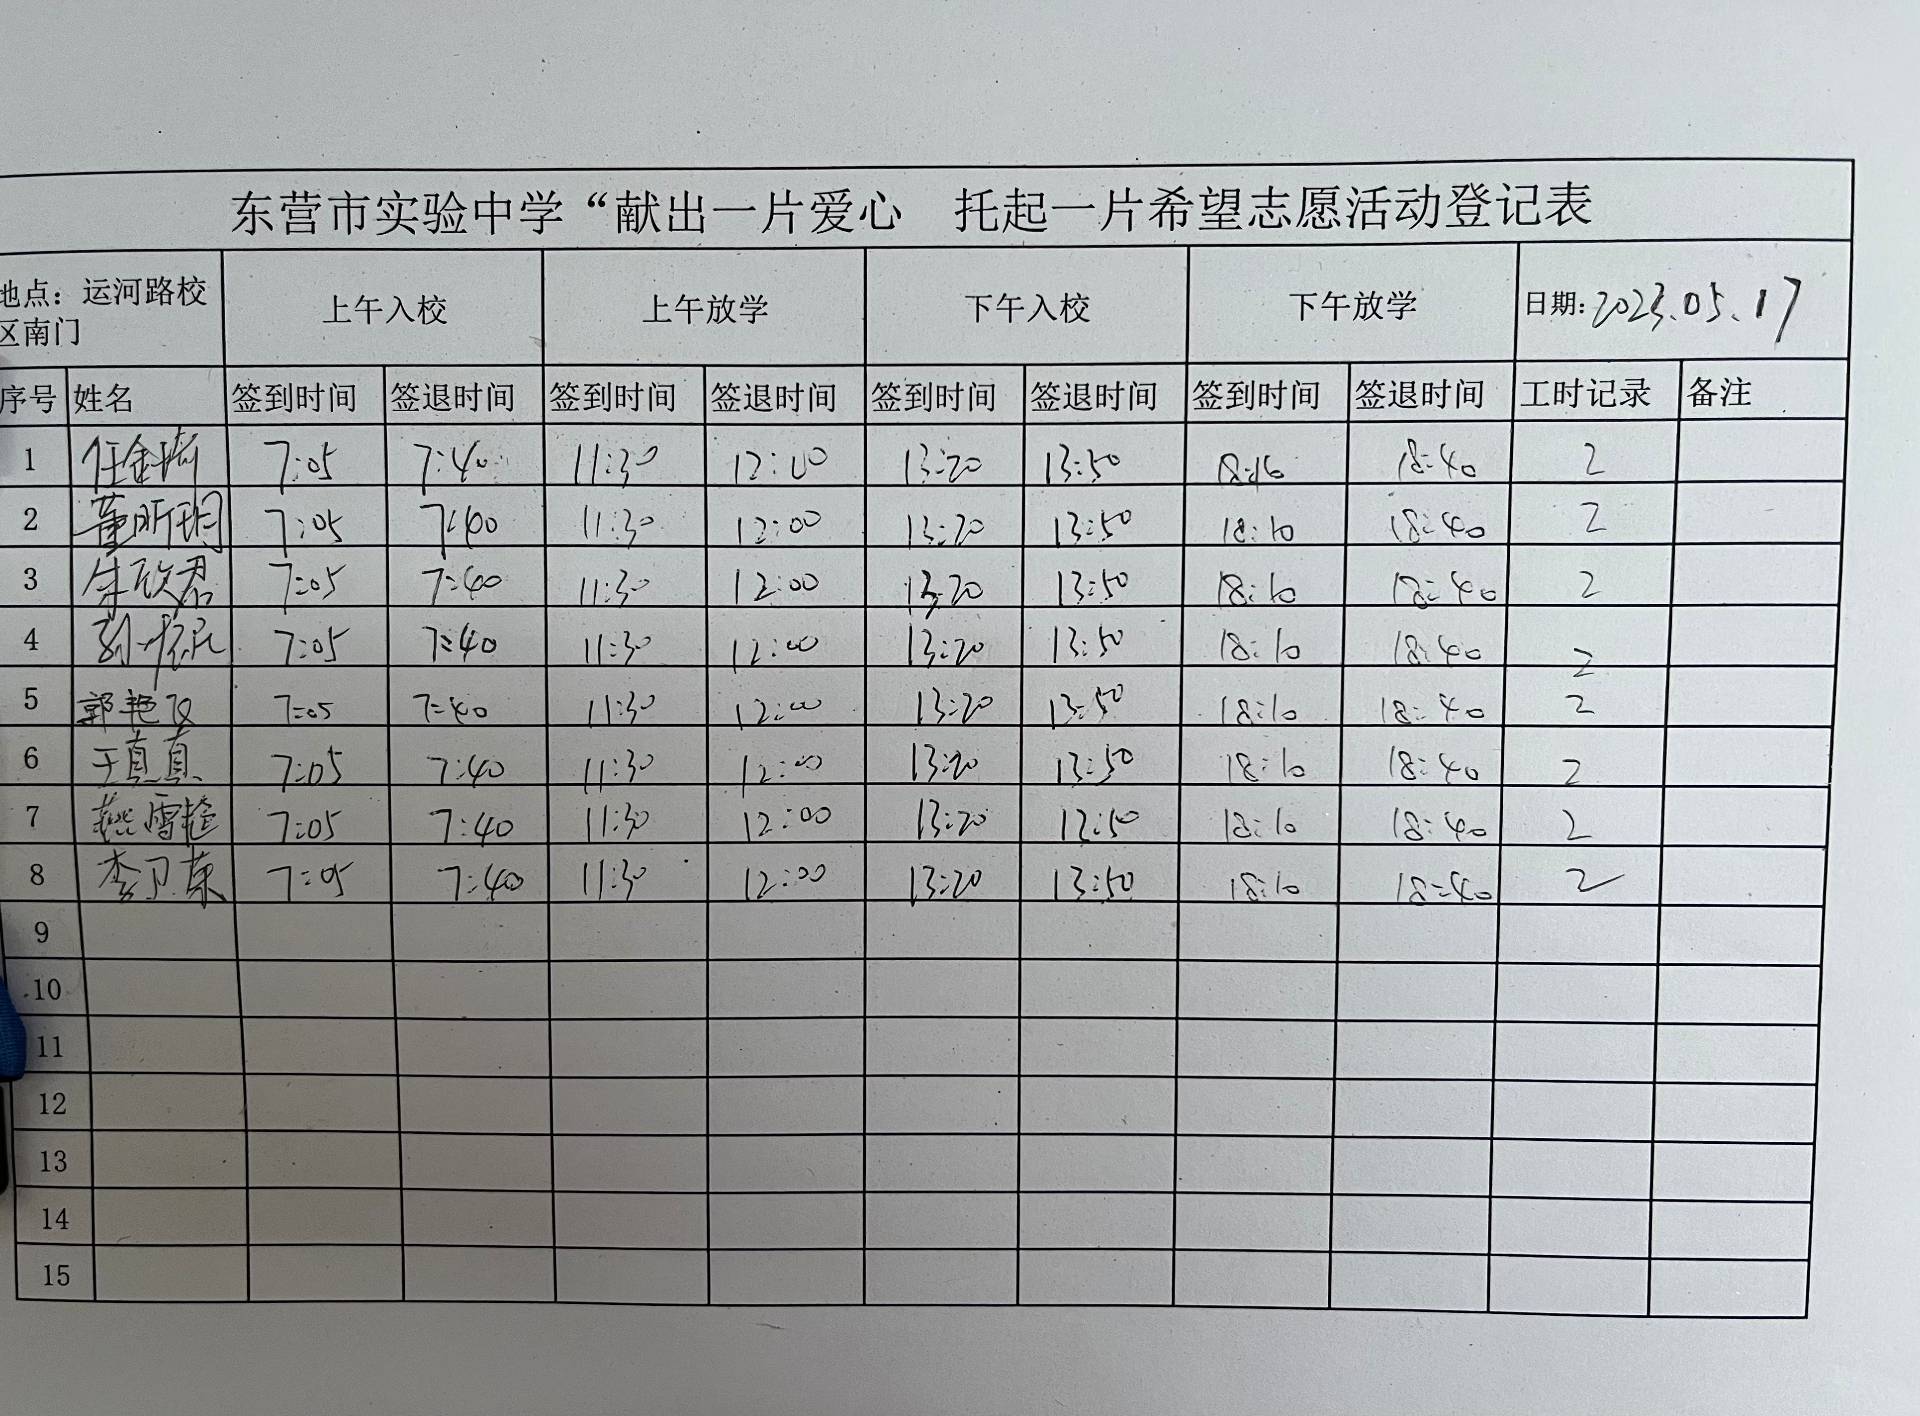 东营市实验中学“献出一片爱心 托起一片希望志愿活动登记表
地点：运河路校区南门 上午入校 上午放学 下午入校 下午放学 日期：2023.05.17
序号 姓名 签到时间 签退时间 签到时间 签退时间 签到时间 签退时间 签到时间 签退时间 工时记录 备注
1 任金琦 7:05 7:40 11:30 12:00 13:20 13:50 18:10 18:40 2
2 董昕玥 7:05 7:40 11:30 12:00 13:20 13:50 18:10 18:40 2
3 牟欣君 7:05 7:40 11:30 12:00 13:20 13:50 18:10 18:40 2
4 7:05 7:40 11:30 12:00 13:20 13:50 18:10 18:40 2
5 郭艳 7:05 7:40 11:30 12:00 13:20 13:50 18:10 18:40 2
6 于真真 7:05 7:40 11:30 12:00 13:20 13:50 18:10 18:40 2
7 燕雪 7:05 7:40 11:30 12:00 13:20 13:50 18:10 18:40 2
8 李卫东 7:05 7:40 11:30 12:00 13:20 13:50 18:10 18:40 2
9
10
11
12
13
14
15